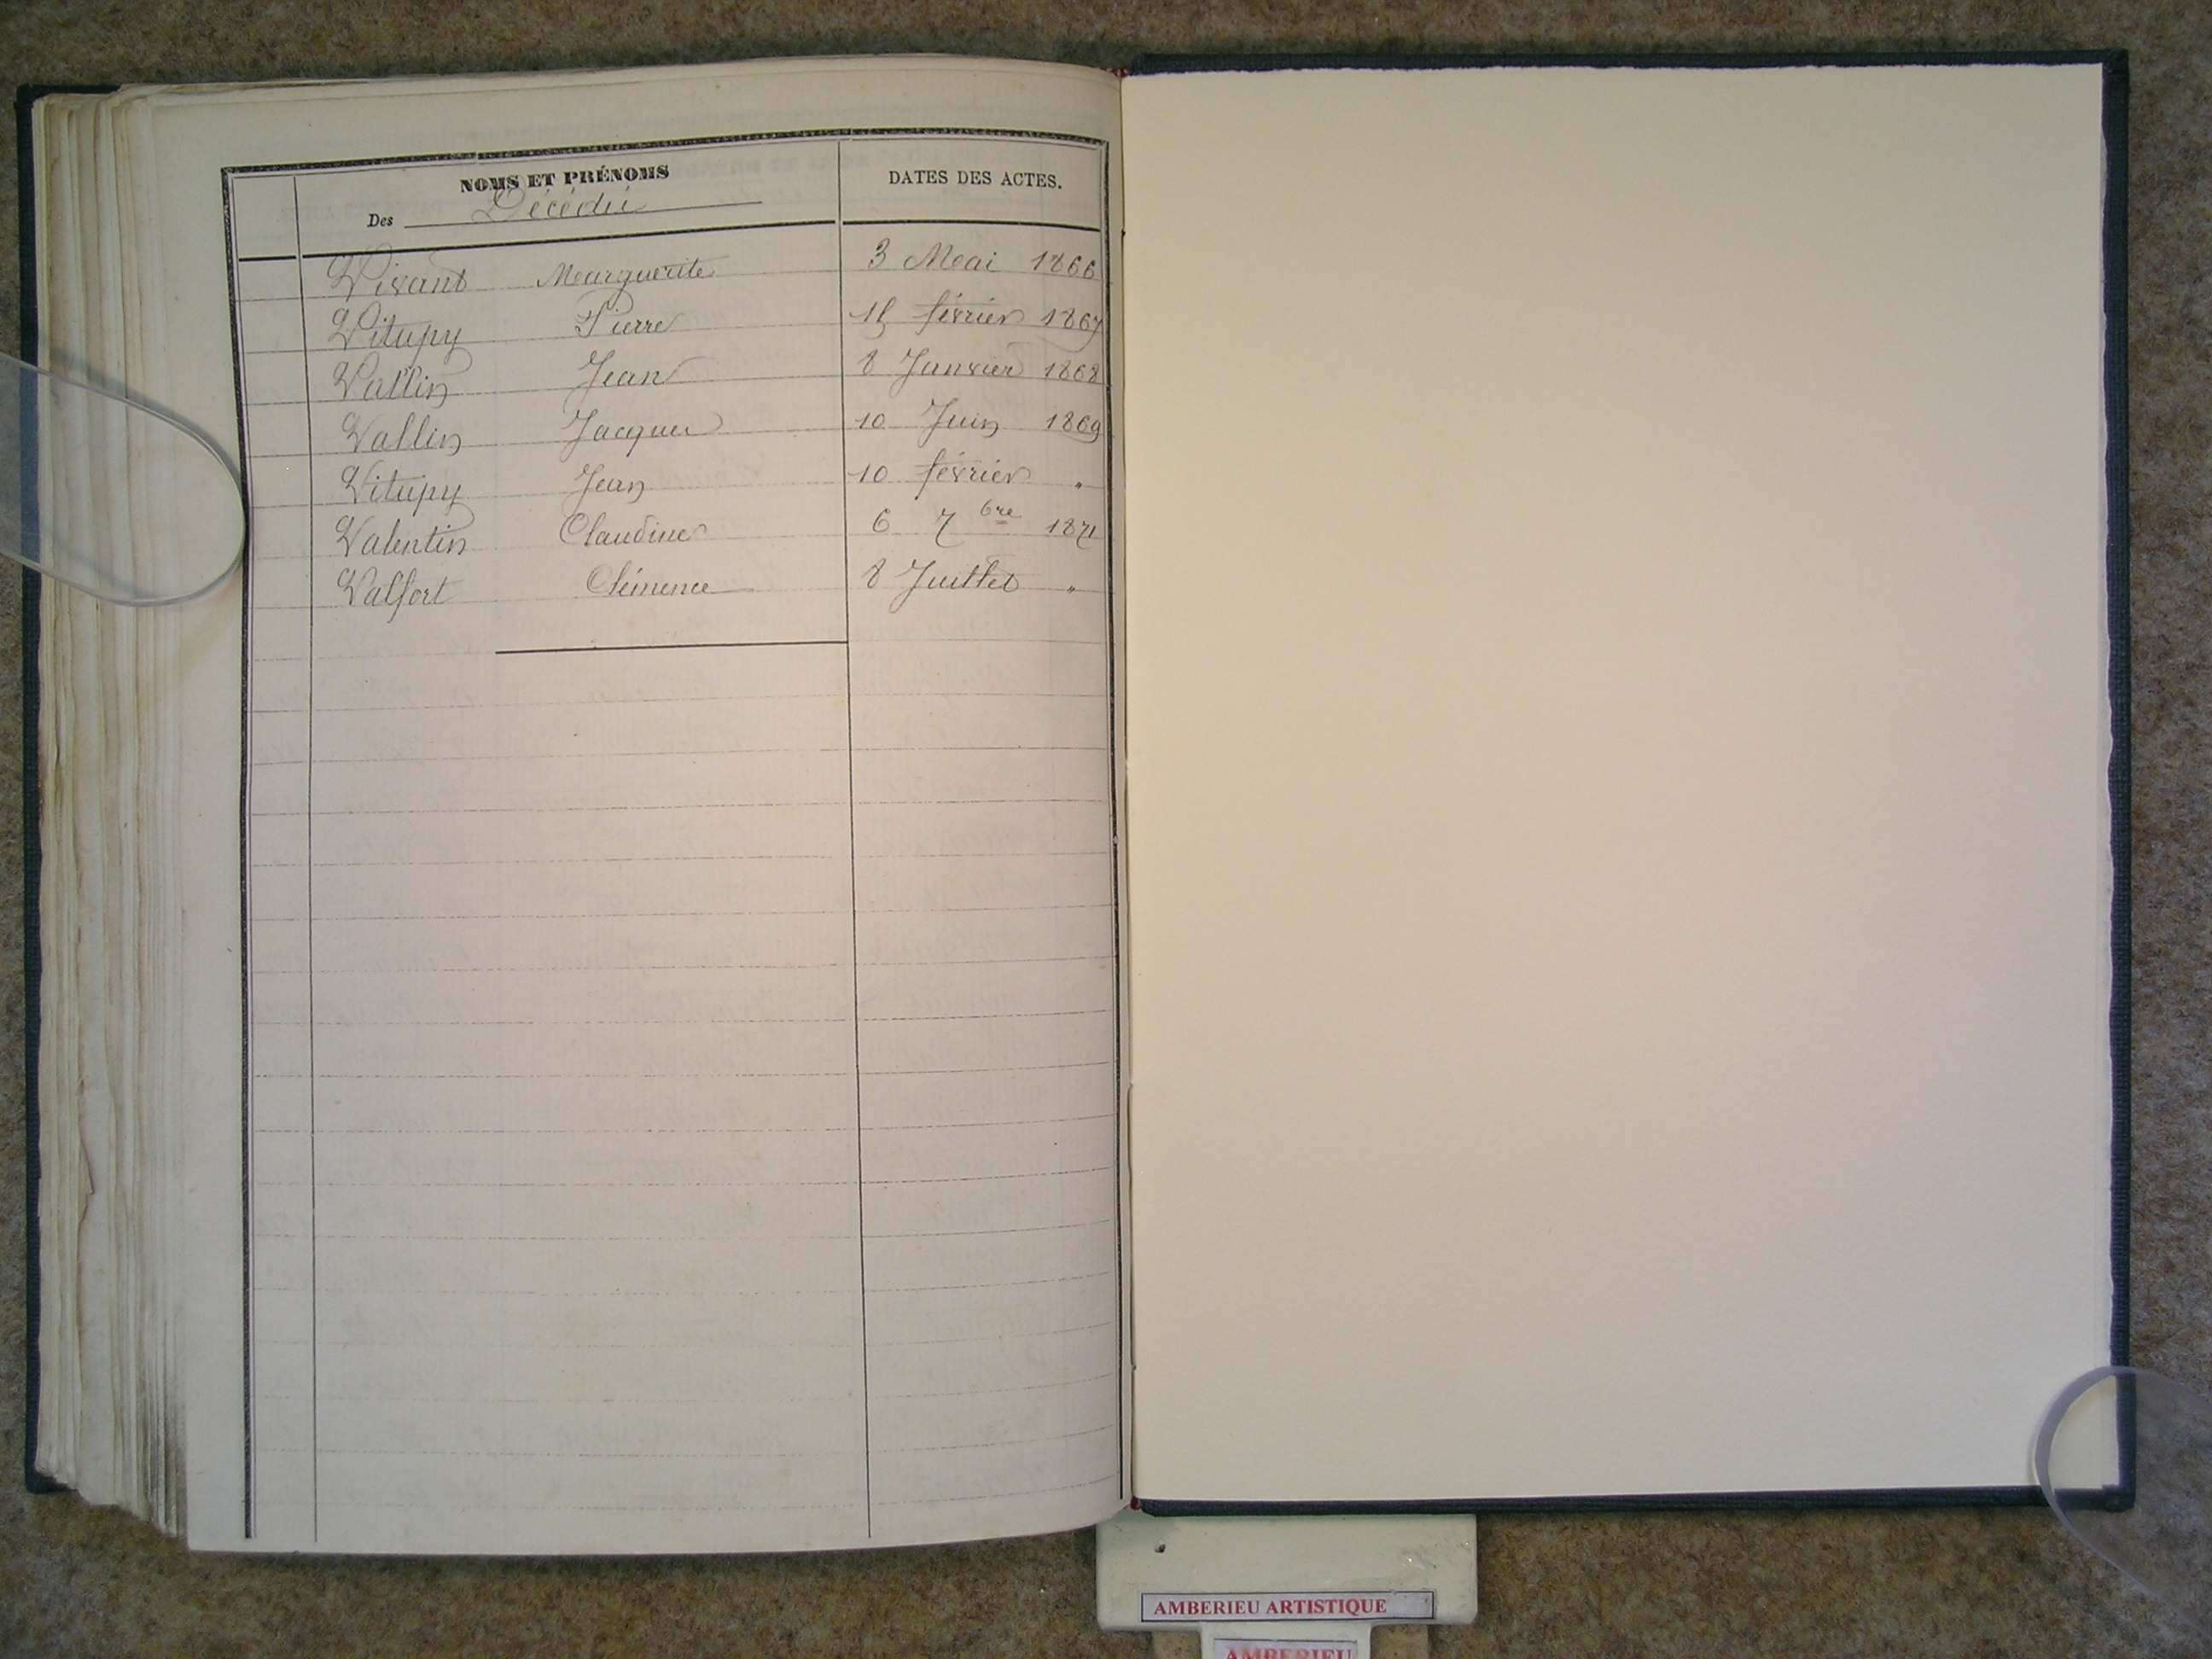 NOMS ET PRÉNOMS
Des Décédés
DATES DES ACTES.
Vivant Marguerite 3 Mai 1866
Vitupy Pierre 15 février 1867
Vallin Jean 8 Janvier 1868
Vallin Jacques 10 Juin 1869
Vitupy Jean 10 février "
Valentin Claudine 6 7bre 1871
Valfort Clémence 8 Juillet "
AMBERIEU ARTISTIQUE
AMBERIEU